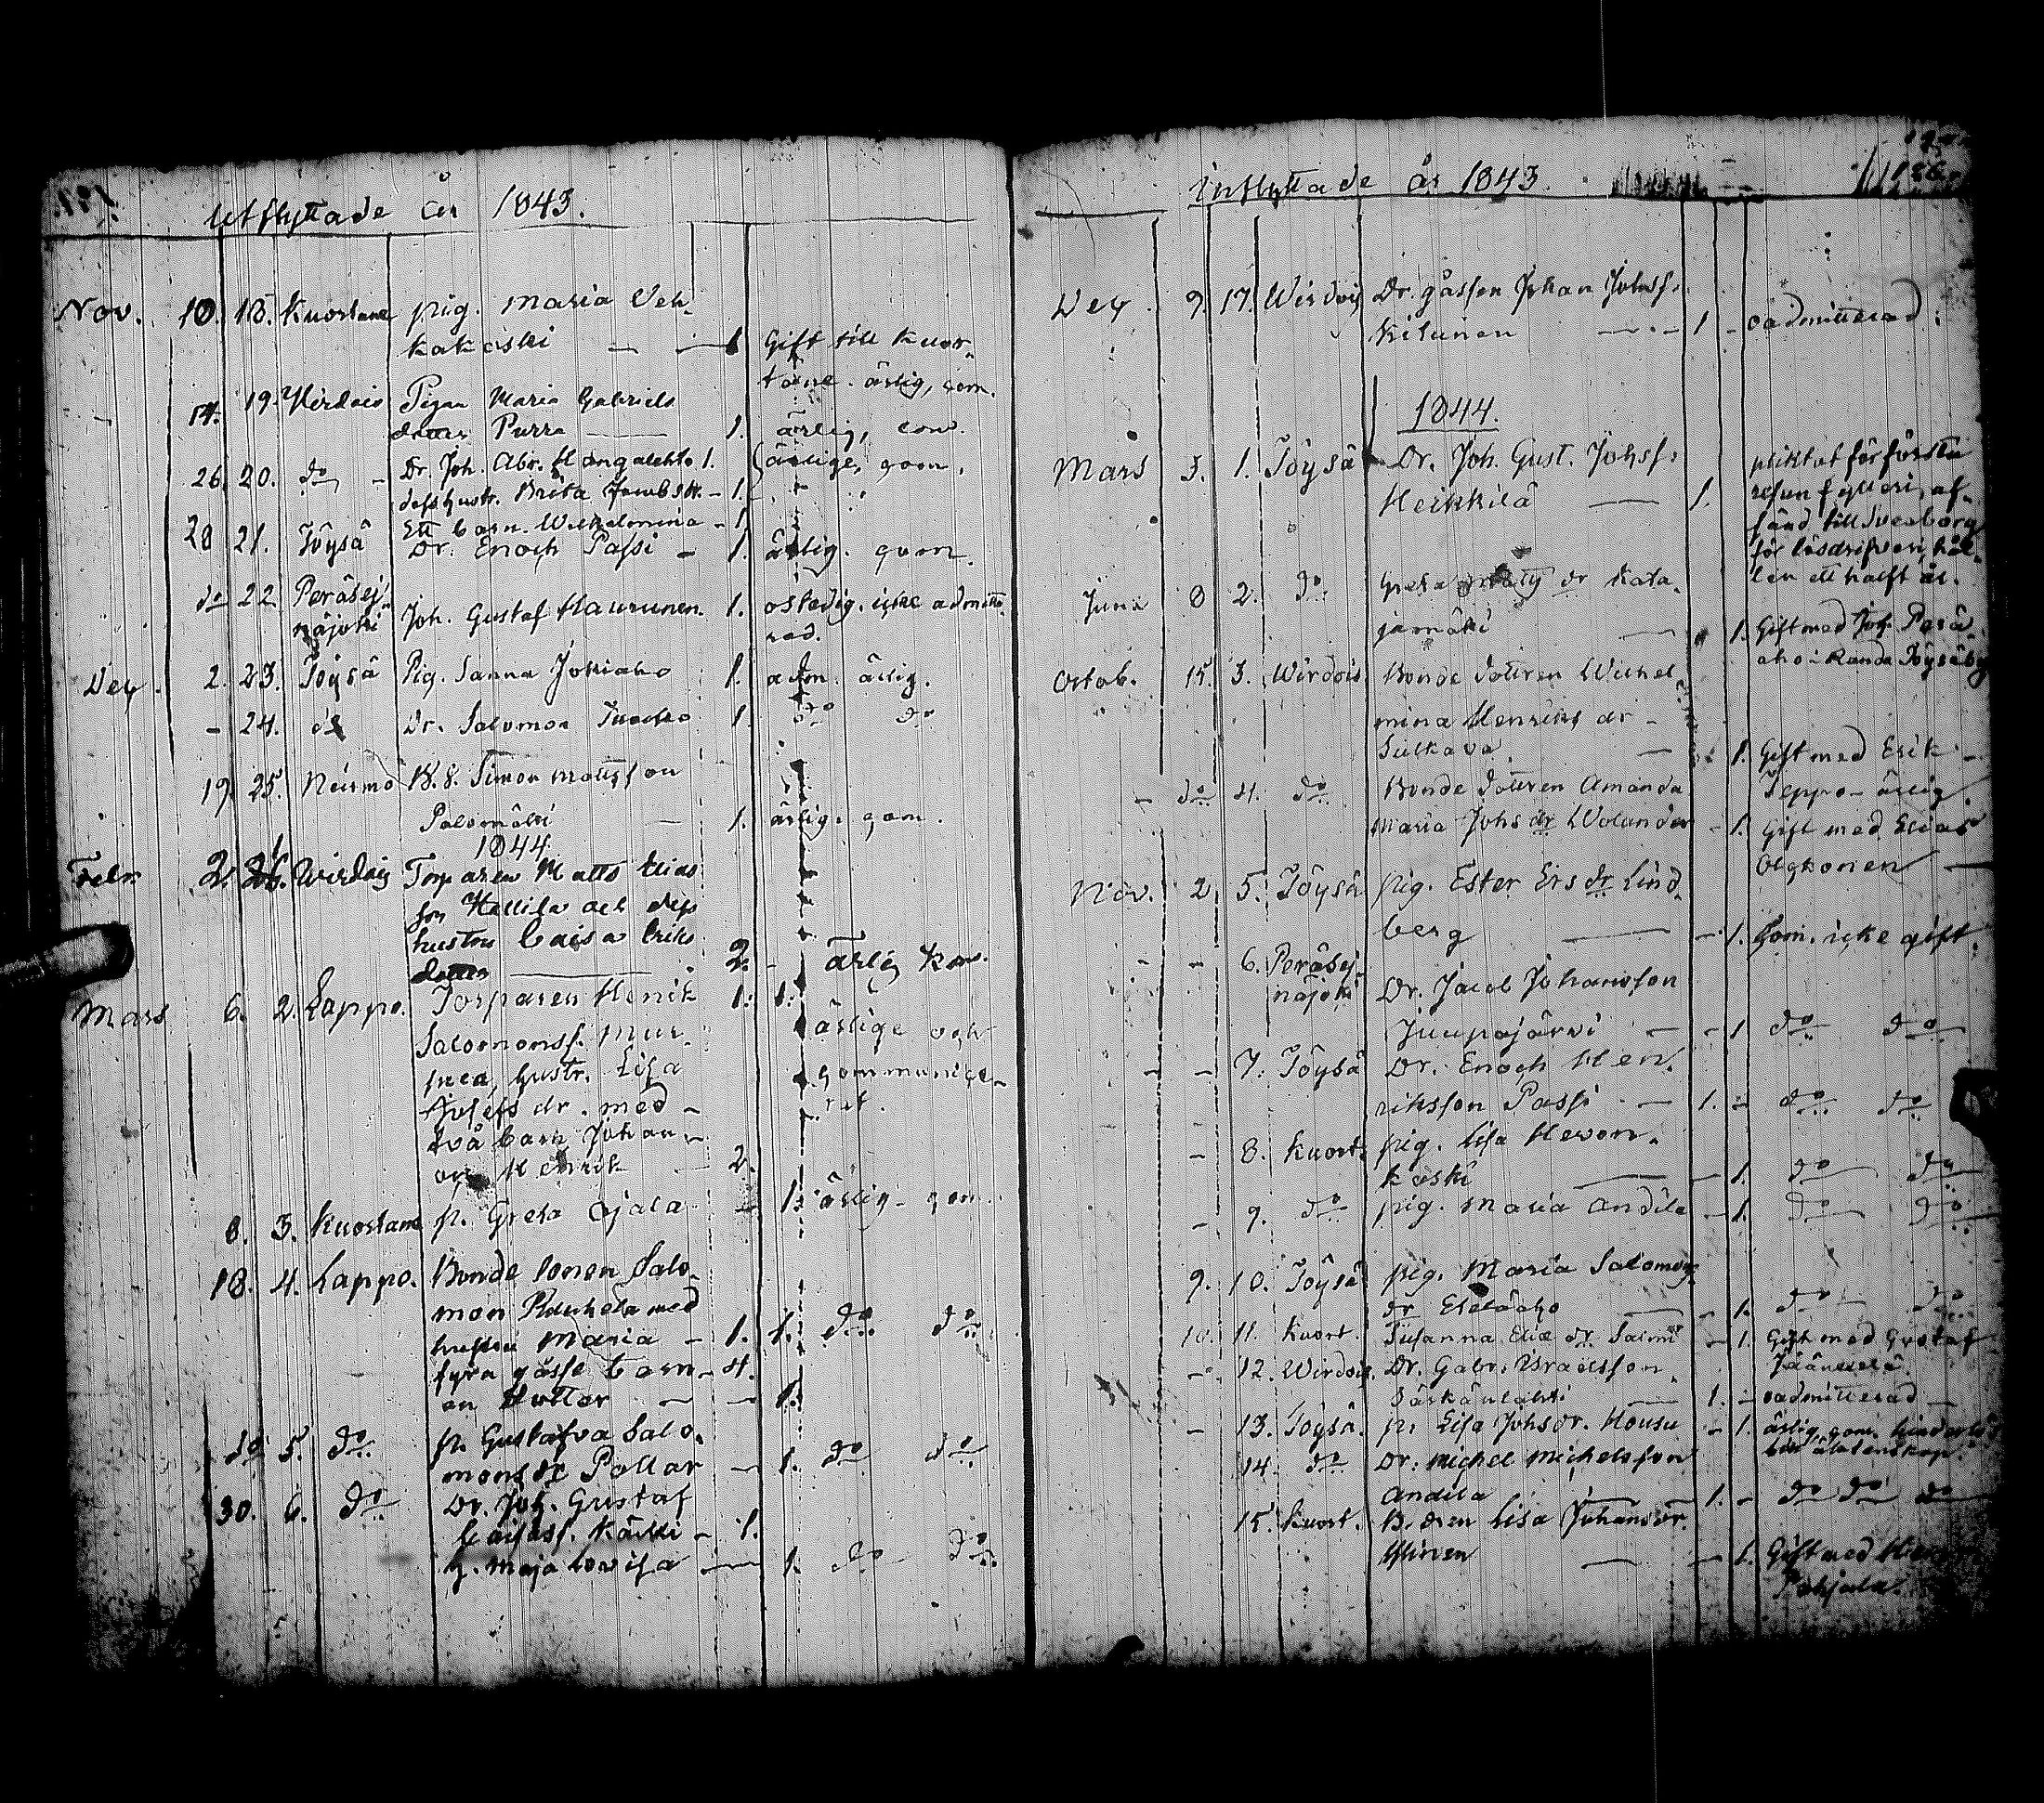 Utflyttade år 1843.
Nov. 10. 18. Kuortane pig. Maria Veh-
kakoski — 1 Gift till Kuor-
tane. ärlig, com.
14. 19. Wirdois Pigan Maria Gabriels
dotter Purra — 1. ärlig, com.
26. 20. do - Dr. Joh. Abr. Hangalehto 1. ärlige, qom.
dess hustr. Brita Jacobsdr. - 1.
Ett barn. Wilhelmina - 1
28 21. Töysä Dr. Enoch Passi - 1. ärlig. qom.
do 22 Peräsej-
näjoki Joh. Gustaf Haurunen. 1. ostadig. icke admitte-
rad.
Dec. 2. 23. Töysä Pig. Sanna Jokiaho 1. adm. ärlig.
- 24. do Dr. Salomon 1. do do
19. 25. Simon Mattsson
Palomäki — 1. ärlig. qom.
1844.
Febr. 2. Wirdois Torparen Matts Elias
son Hallila och dess
hustru Caisa Eriks
dotter — 2. - Ärlig kom.
Mars 6. 2. Lappo. Torparen Henrik 1. 1.
Salomonss. Mur- ärlige och
pea, hustr. Lisa qommunice-
Josefs dr. med - rat.
två barn Johan -
oc Henrik 2.
8. 3. Kuortane p. Greta Ojala - 1. ärlig - qom.
18. 4. Lappo. Bonde sonen Salo-
mon med
hustru Maria - 1. 1. do do
fyra gosse barn - 4.
en dotter — - 1.
do 5. do p. Gustafva Salo-
mons dr Pollar - 1. do do
30. 6. do Dr. Joh. Gustaf
Kärki - 1.
h. Maja Lovisa — 1. do do
Inflyttade år 1843.
186.
Dec. 9. 17. Wirdois Dr. gåssen Johan Johss.
Kitunen — 1 - oadmitterad.
1844.
Mars 3. 1. Töysä Dr. Joh. Gust. Johss. pliktat för första
Heikkilä — 1. resan fylleri, af-
sänd till Sveaborg
för lösdrifveri, hål-
len ett halft år.
Juni 8 2. do Greta Matts dr Kata-
jamäki — 1. Gift med Joh. Perä-
aho i Randa Töysäby
Octob. 15. 3. Wirdois Bonde dottren Wilhel-
mina Henriks dr -
Sulkava — 1. Gift med Erik -
Seppo - ärlig.
- do 4. do Bonde dottren Amanda
Maria Johs dr Wolander - 1. Gift med Elias
Nov. 2. 5. Töysä pig. Ester Ers dr Lind-
berg — - 1. Qom. icke gift.
- - 6. Peräsej-
näjoki Dr. Jacob Johansson
Juupajärvi — - 1 do do
- - 7. Töysä Dr. Enoch Hen-
riksson Passi - — 1. - do do
- 8. Kuort. pig. Lisa Hevon-
koski — - 1. do do
- 9. do pig. Maria Andila - 1. do do
9. 10. Töysä pig. Maria Salomons
dr Eteläaho — - 1. do do
10. 11. Kuort. Susanna Eliæ dr Salmi - 1. Gift med Gustaf
- 12. Wirdois. Dr. Gabr. Israelsson
— 1. - oadmitterad -
- 13. Töysä. p. Lisa Johsdr. Housu - 1. ärlig, qom. hinderlös
till äktenskap.
14. do Dr. Michel Michelsson
Andila — 1. - do do do
15. Kuort. B. dren Lisa Johansdr.
— - 1. Gift med
Pohjala.